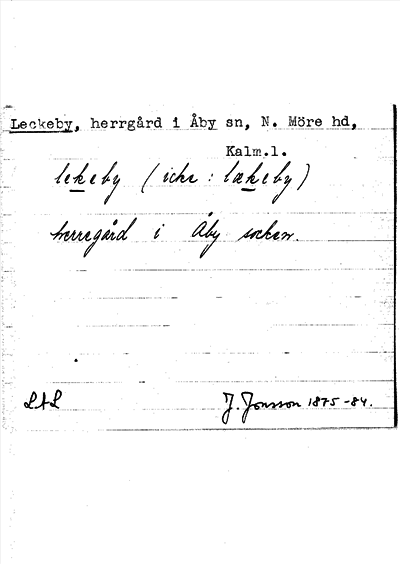 Leckeby, herrgård i Åby sn, N. Möre hd,
Kalm.l.
lekeby (icke: lækeby)
herregård i Åby socken.
LAL J. Jonsson 1875-84.